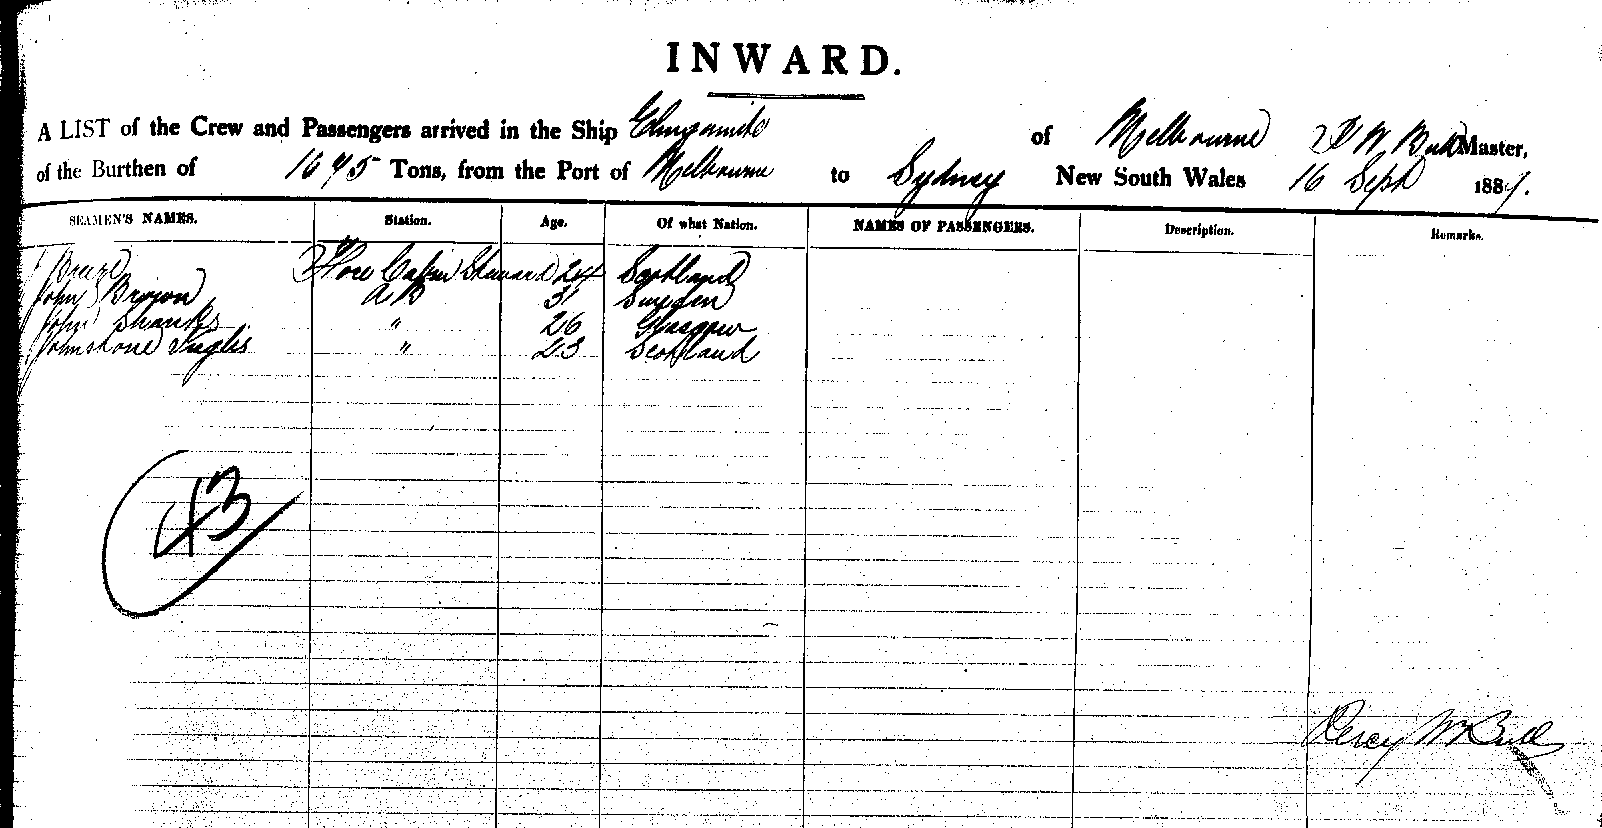 INWARD.
A LIST of the Crew and Passengers arrived in the Ship Elingamite of Melbourne P W Bull Master,
of the Burthen of 1675 Tons, from the Port of Melbourne to Sydney New South Wales 16 Sept 1889.
SEAMEN'S NAMES. Station. Age. Of what Nation. NAMES OF PASSENGERS. Description. Remarks.
Breeze Fore Cabin Steward 24 Scotland
John Brown AB 31 Sweden
John Shanks " 26 Glasgow
Johnstone Inglis " 23 Scotland
43
Percy W Bull